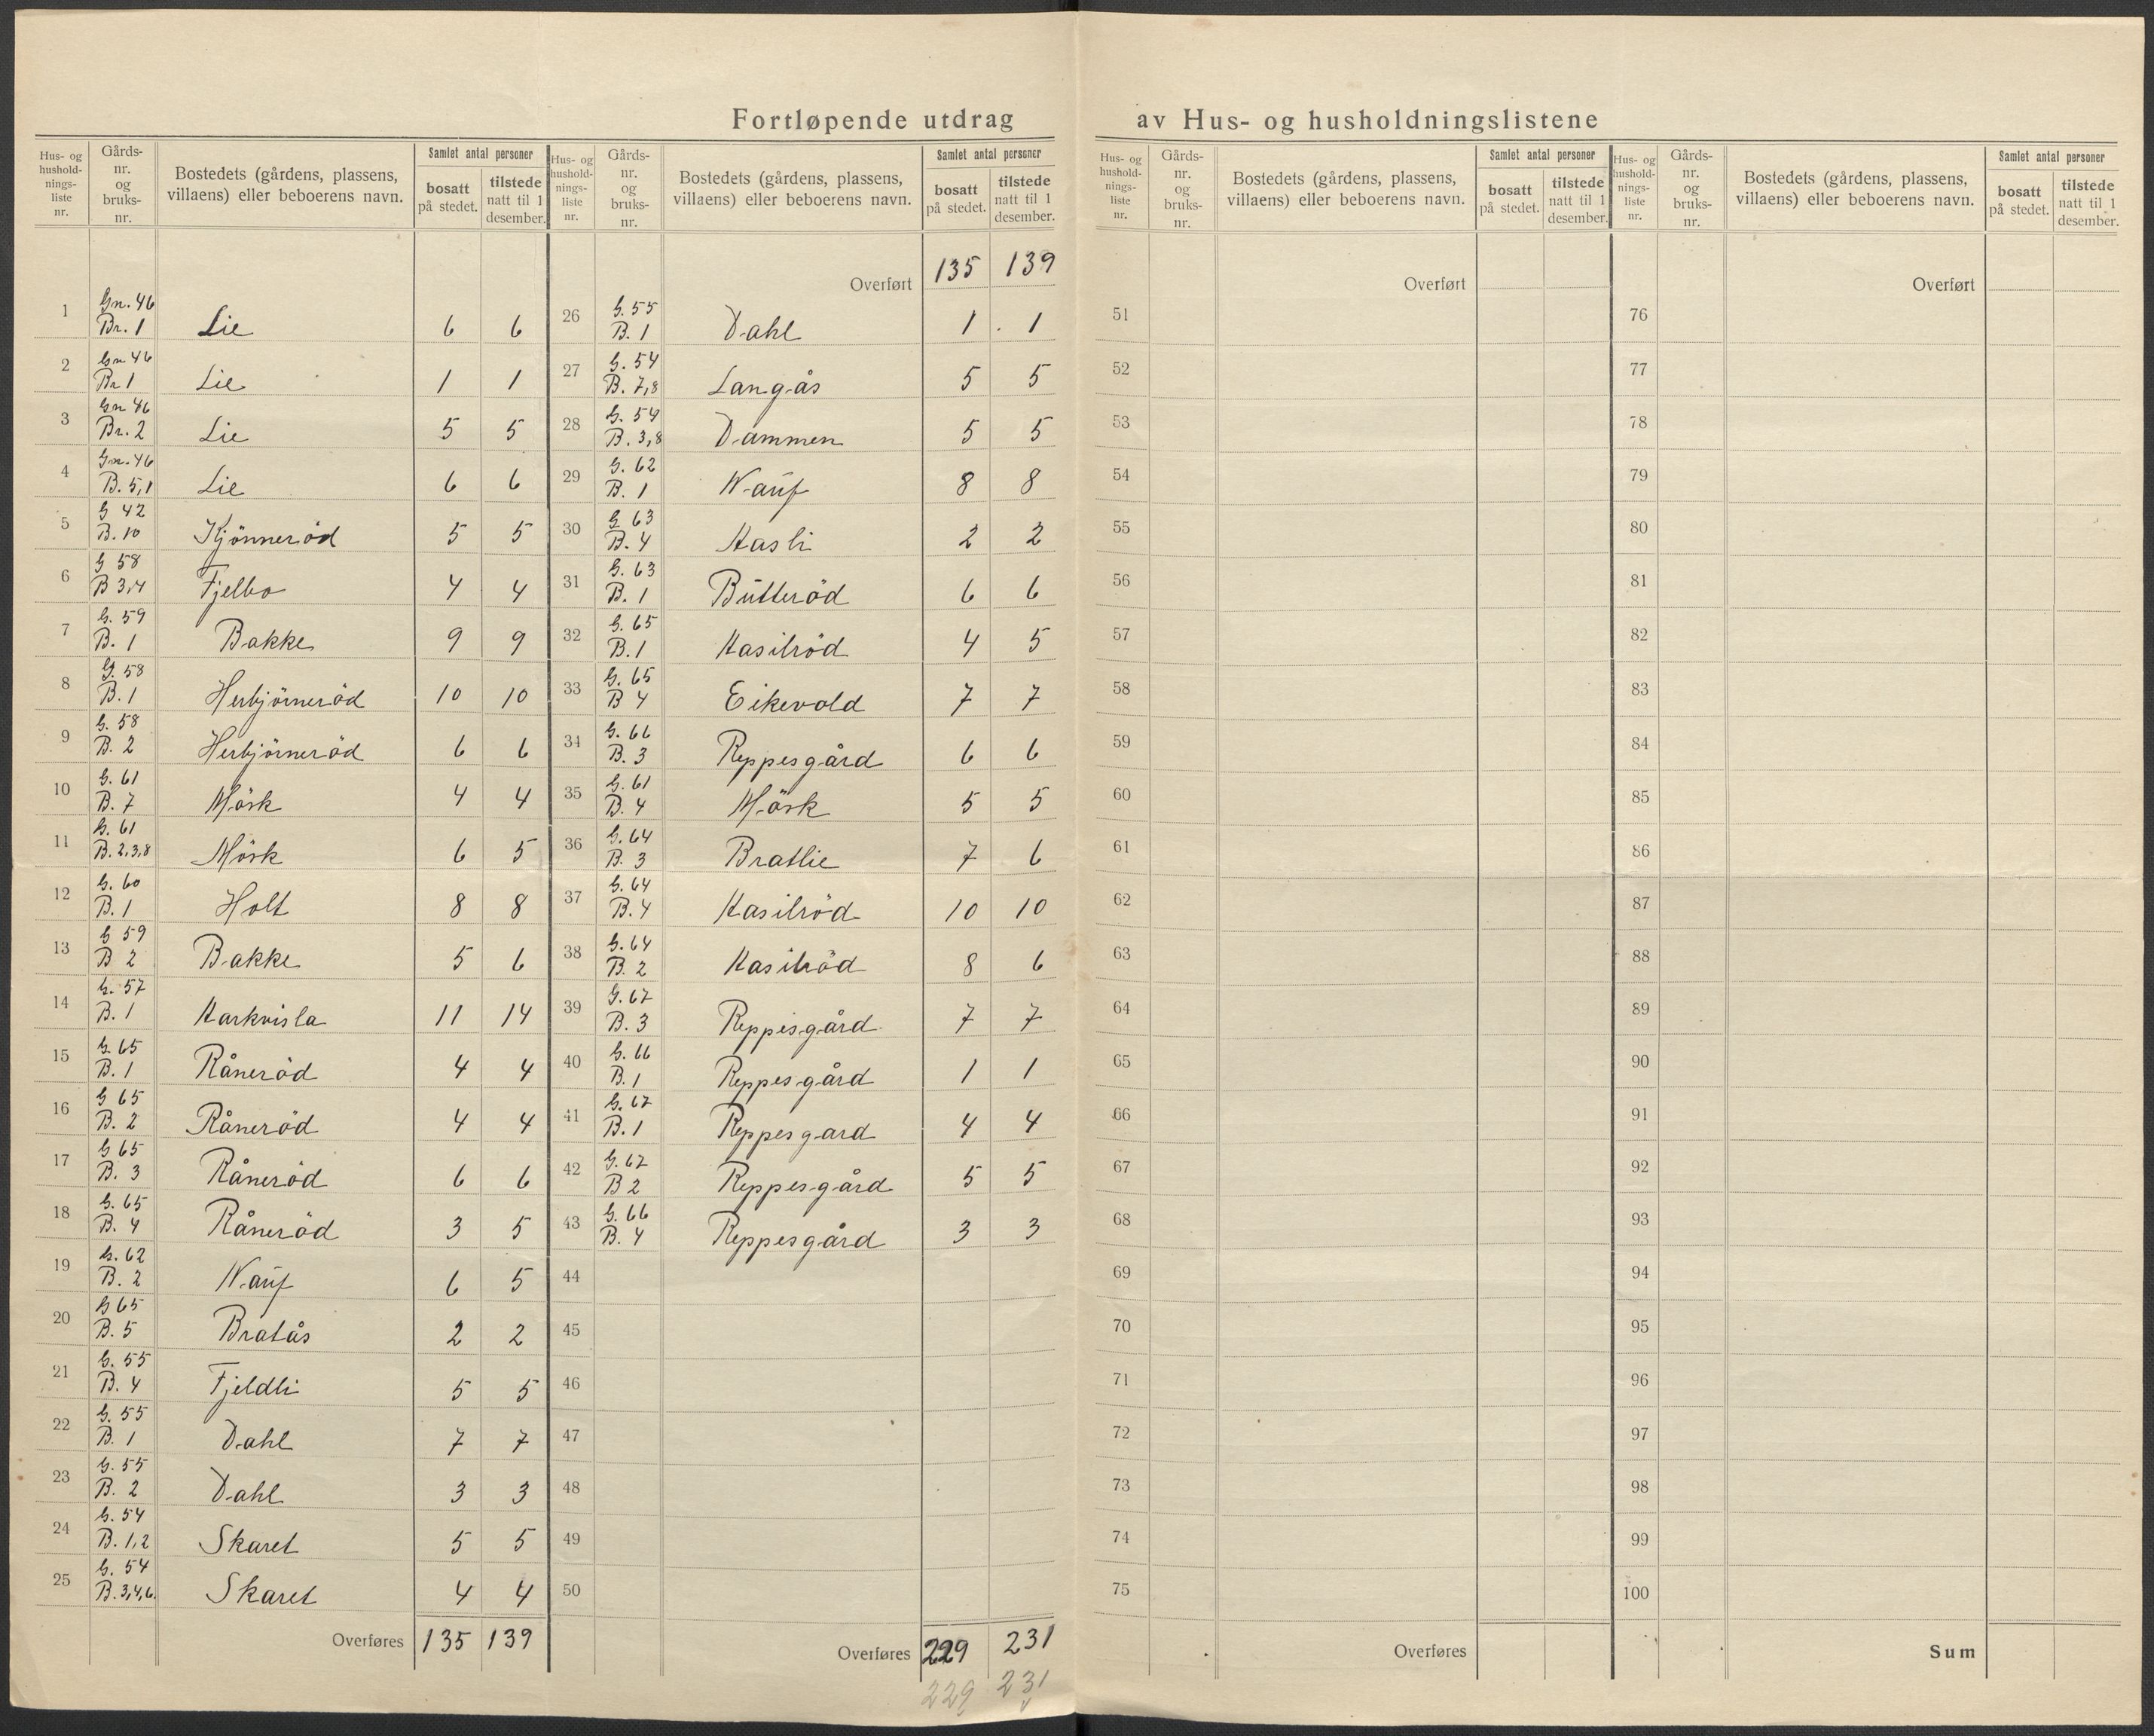 Fortløpende utdrag av Hus- og husholdningslistene
Hus- og hushold-nings-liste nr. | Gårds-nr. og bruks-nr. | Bostedets (gårdens, plassens, villaens) eller beboerens navn. | Samlet antal personer | bosatt på stedet. | tilstede natt til 1 desember.
1 Gn. 46 Br. 1 Lie 6 6
2 Gn 46 Br 1 Lie 1 1
3 Gn 46 Br. 2 Lie 5 5
4 Gn. 46 B. 5,1 Lie 6 6
5 G 42 B. 10 Kjönneröd 5 5
6 G 58 B 3,4 Fjelbo 4 4
7 G. 59 B. 1 Bakke 9 9
8 G. 58 B. 1 Herbjörneröd 10 10
9 G. 58 B. 2 Herbjörneröd 6 6
10 G. 61 B. 7 Mörk 4 4
11 G. 61 B. 2,3,8 Mörk 6 5
12 G. 60 B. 1 Holt 8 8
13 G 59 B 2 Bakke 5 6
14 G. 57 B. 1 Karkvisla 11 14
15 G. 65 B. 1 Råneröd 4 4
16 G 65 B. 2 Råneröd 4 4
17 G 65 B. 3 Råneröd 6 6
18 G. 65 B. 4 Råneröd 3 5
19 G. 62 B. 2 Nauf 6 5
20 G 65 B. 5 Bratås 2 2
21 G. 55 B. 4 Fjeldli 5 5
22 G. 55 B. 1 Dahl 7 7
23 G. 55 B. 2 Dahl 3 3
24 G. 54 B. 1,2 Skaret 5 5
25 G. 54 B. 3,4,6. Skaret 4 4
Overføres 135 139
Hus- og hushold-nings-liste nr. | Gårds-nr. og bruks-nr. | Bostedets (gårdens, plassens, villaens) eller beboerens navn. | Samlet antal personer | bosatt på stedet. | tilstede natt til 1 desember.
Overført 135 139
26 G. 55 B. 1 Dahl 1 1
27 G. 54 B. 7,8 Langås 5 5
28 G. 54 B. 3,8 Dammen 5 5
29 G. 62 B. 1 Nauf 8 8
30 G 63 B. 4 Kasli 2 2
31 G. 63 B. 1 Butteröd 6 6
32 G. 65 B. 1 Kasilröd 4 5
33 G. 65 B 4 Eikevold 7 7
34 G. 66 B. 3 Reppesgård 6 6
35 G. 61 B. 4 Mörk 5 5
36 G. 64 B. 3 Bratlie 7 6
37 G. 64 B. 4 Kasilröd 10 10
38 G. 64 B. 2 Kasilröd 8 6
39 G. 67 B. 3 Reppesgård 7 7
40 G. 66 B. 1 Reppesgård 1 1
41 G. 67 B. 1 Reppesgard 4 4
42 G. 67 B 2 Reppesgård 5 5
43 G. 66 B. 4 Reppesgård 3 3
44
45
46
47
48
49
50
Overføres 229 231
229 231
Hus- og hushold-nings-liste nr. | Gårds-nr. og bruks-nr. | Bostedets (gårdens, plassens, villaens) eller beboerens navn. | Samlet antal personer | bosatt på stedet. | tilstede natt til 1 desember.
Overført
51
52
53
54
55
56
57
58
59
60
61
62
63
64
65
66
67
68
69
70
71
72
73
74
75
Overføres
Hus- og hushold-nings-liste nr. | Gårds-nr. og bruks-nr. | Bostedets (gårdens, plassens, villaens) eller beboerens navn. | Samlet antal personer | bosatt på stedet. | tilstede natt til 1 desember.
Overført
76
77
78
79
80
81
82
83
84
85
86
87
88
89
90
91
92
93
94
95
96
97
98
99
100
Sum